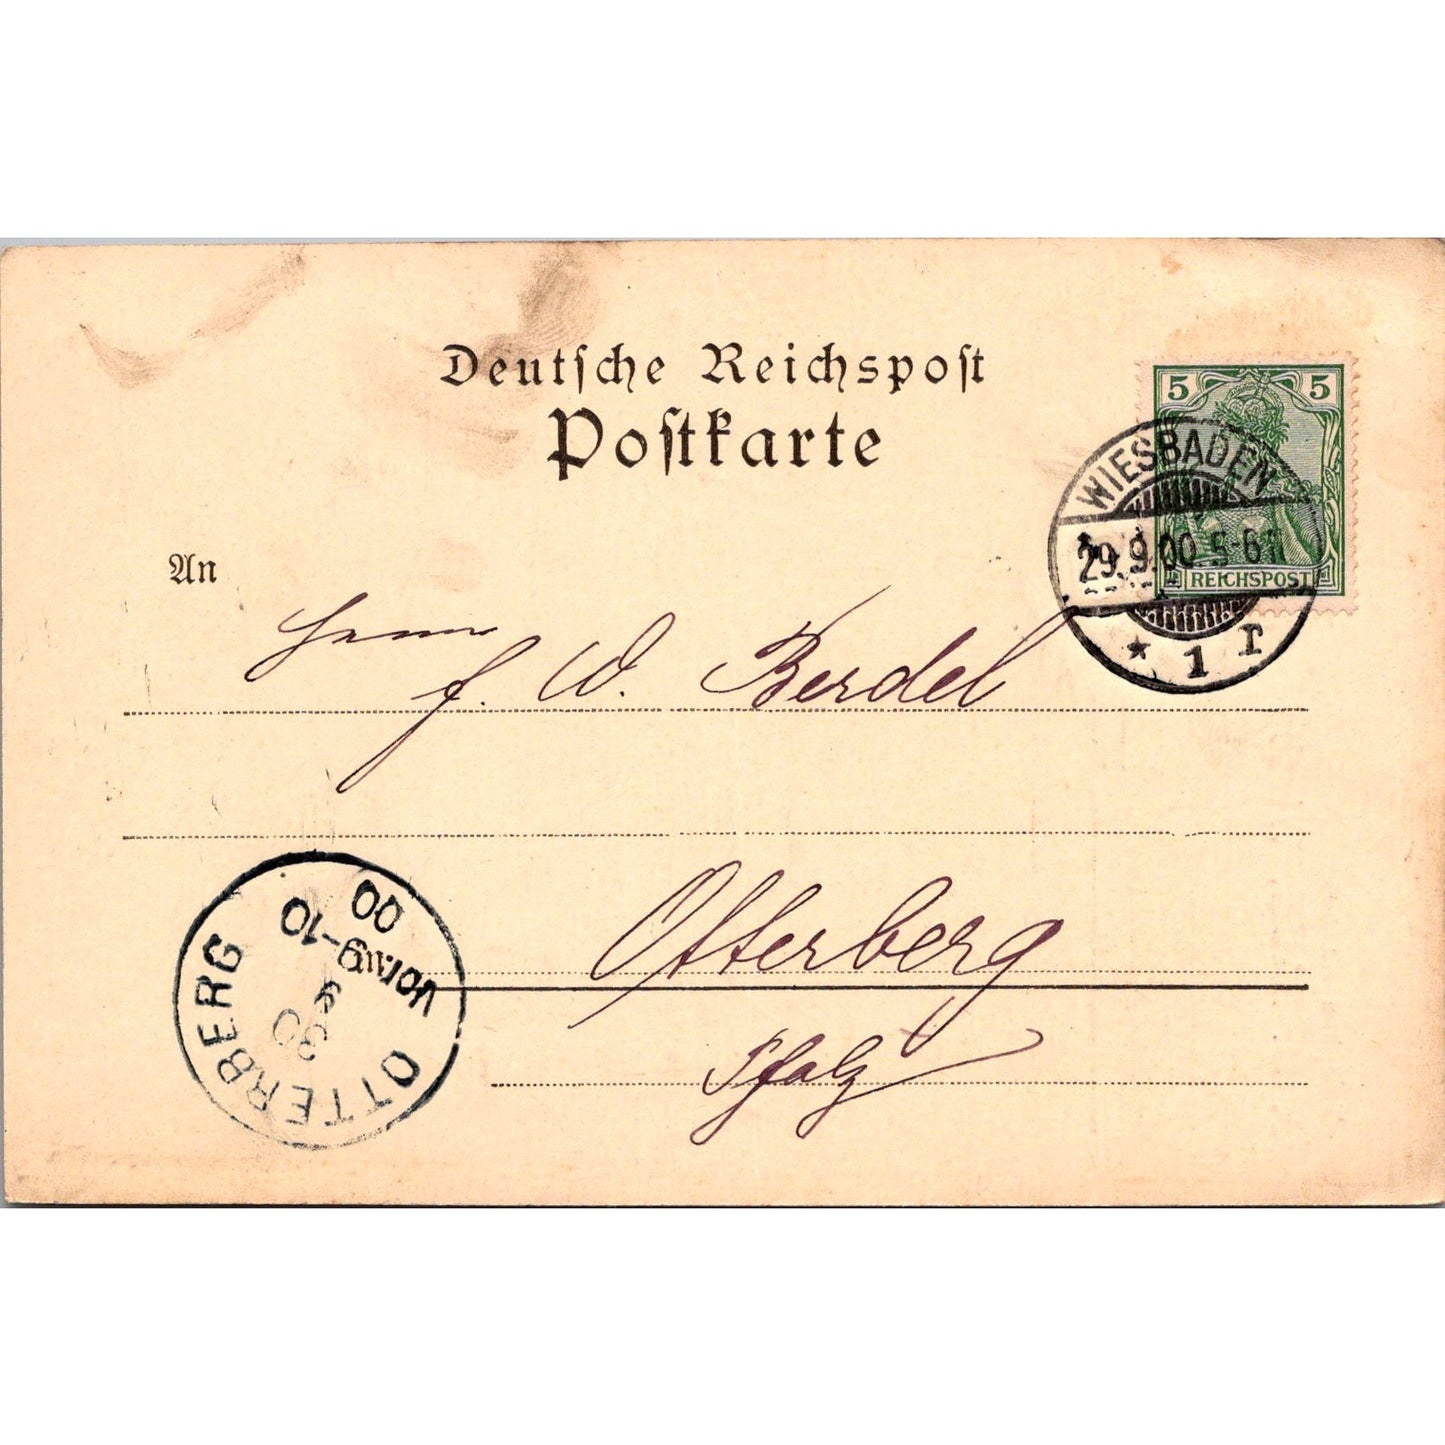 Deutsche Reichspost
Postkarte
5 5
REICHSPOST
WIESBADEN
29.9.00. 5-6 N
* 1 r
An
Herrn
F. W. Berdel
Otterberg
Pfalz
OTTERBERG
30
Vorm 9-10
00